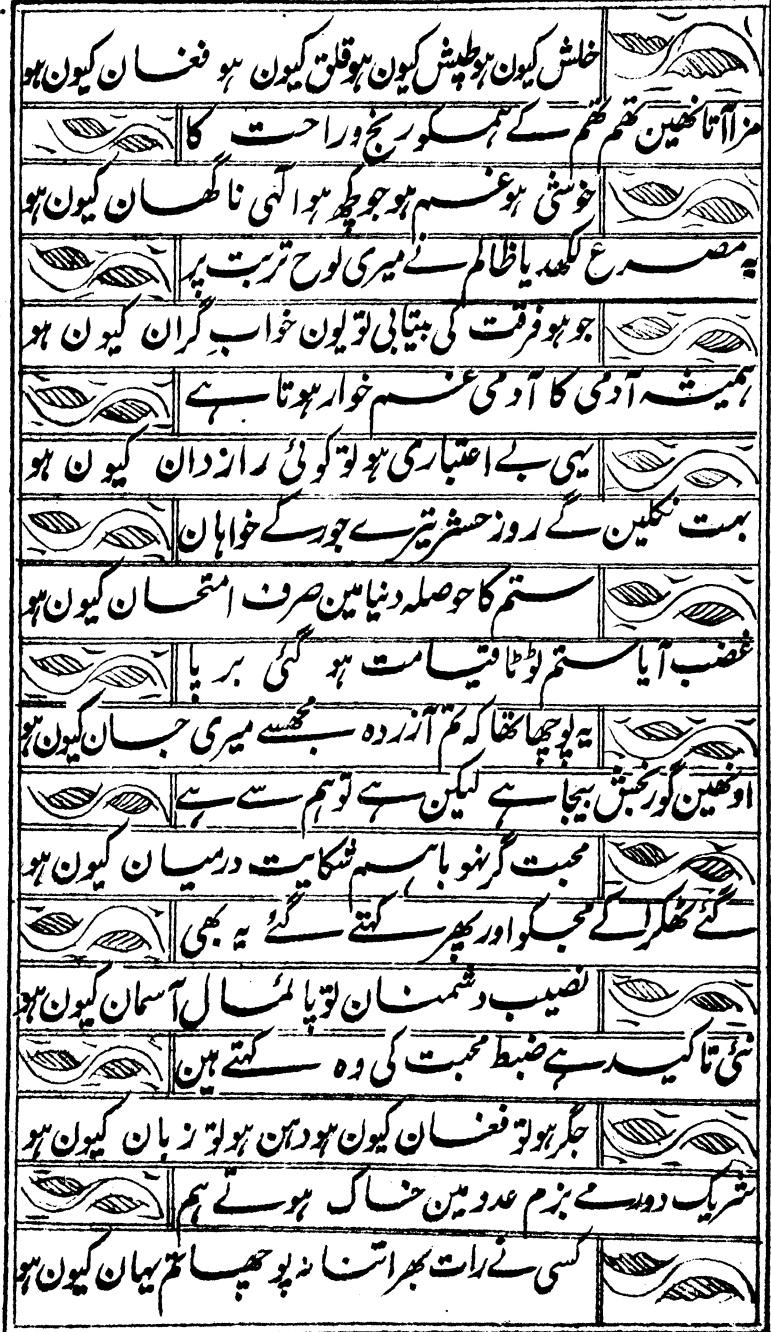 خلش کیون ہو طپش کیون ہو قلق کیون ہو فغان کیون ہو
مزا آتا نھین تھم تھم کے ہمکو رنج و راحت کا
خوشی ہو غم ہو جو کچھ ہو الٰہی ناگھان کیون ہو
یہ مصرع لکھدیا ظالم نے میری لوح تربت پر
جو ہو فرقت کی بیتابی تو یون خوابِ گران کیون ہو
ہمیشہ آدمی کا آدمی غم خوار ہوتا ہے
یہی بے اعتباری ہو تو کوئی رازدان کیون ہو
بہت نکلین گے روز حشر تیرے جور کے خواہان
ستم کا حوصلہ دنیا مین صرف امتحان کیون ہو
غضب آیا ستم ٹوٹا قیامت ہو گئی برپا
یہ پوچھا تھا کہ تم آزردہ مجھسے میری جان کیون ہو
اونھین گو رنجش بیجا ہے لیکن ہے تو ہم سے ہے
محبت گر نہو باہم شکایت درمیان کیون ہو
گئے ٹھکرا کے مجکو اور پھر کہتے گئے یہ بھی
نصیب دشمنان تو پائمال آسمان کیون ہو
نئی تاکید ہے ضبط محبت کی وہ کہتے ہین
جگر ہو تو فغان کیون ہو دہن ہو تو زبان کیون ہو
شریک دور مے بزم عدو مین خاک ہوتے ہم
کسی نے رات بھر اتنا نہ پوچھا تم یہان کیون ہو